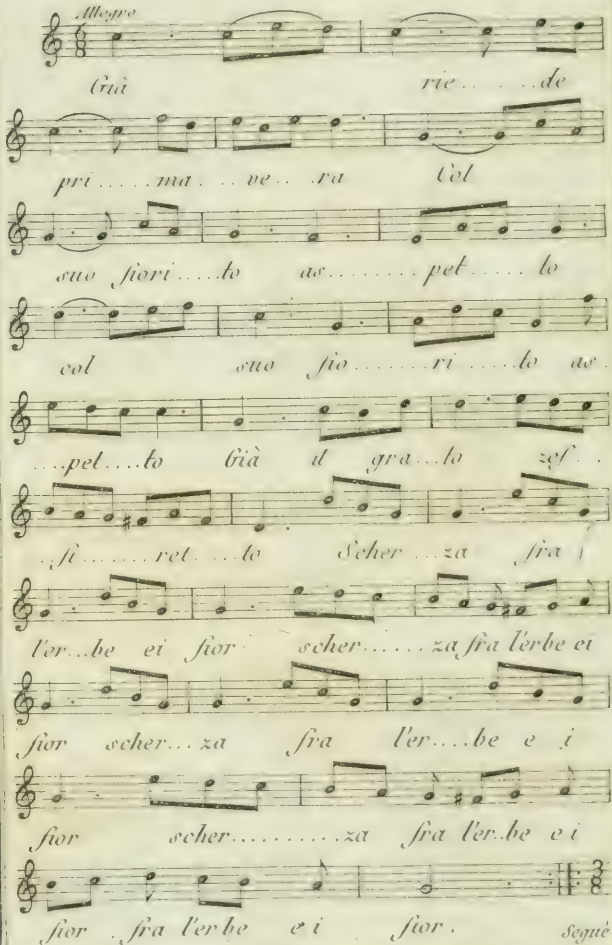 Allegro
6 8
Già rie......de
pri.....ma...ve...ra Col
suo fiori....to as........pet.....to
col suo fio.....ri....to as.
....pet....to Già il gra...to zef...
..fi.......ret....to Scher...za fra
l'er...be ei fior scher......za fra l'erbe ei
fior scher...za fra l'er....be e i
fior scher..........za fra l'er..be e i
3 8
fior fra l'erbe e i fior. Seguè